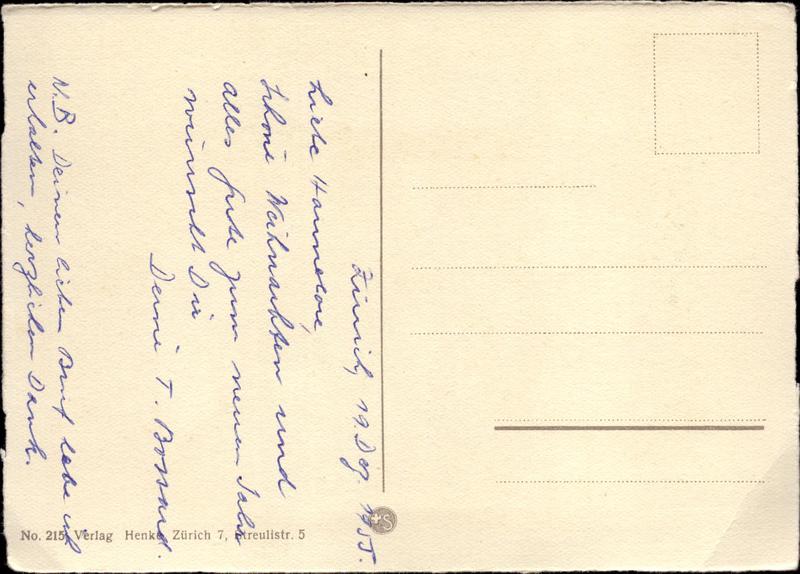 Zürich, 19. Dez. 1955.
Liebe Hannelore,
Schöne Weihnachten und
alles gute zum neuen Jahr
wünscht Dir
Deine T. Bossard.
N.B. Deinen lieben Brief habe ich
erhalten, herzlichen Dank.
No. 215 Verlag Henke, Zürich 7, Streulistr. 5
+S